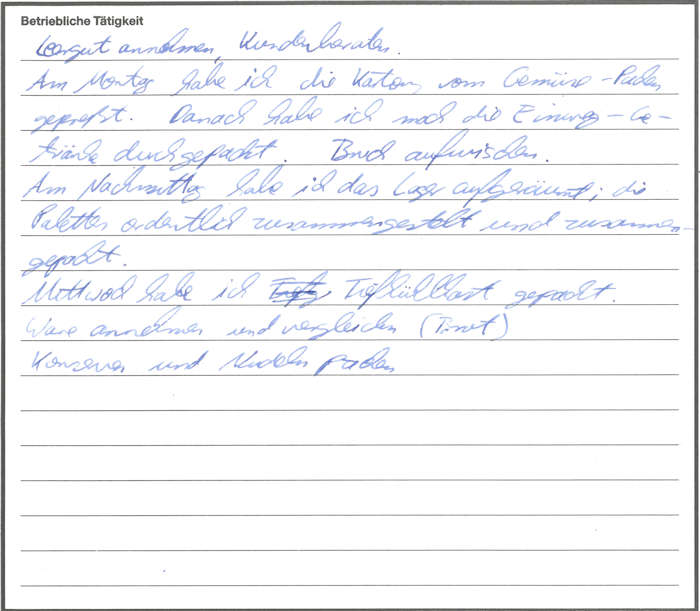 Betriebliche Tätigkeit
Leergut annehmen, Kundenberaten.
Am Montag habe ich die Kartons vom Gemüse-Packen
gepreßt. Danach habe ich noch die Einweg-Ge-
tränke durchgepackt. Bruch aufwischen.
Am Nachmittag habe ich das Lager aufgeräumt; die
Paletten ordentlich zusammengestellt und zusammen-
gepackt.
Mittwoch habe ich Tiefkühlkost gepackt.
Ware annehmen und vergleichen
Konserven und Nudeln packen